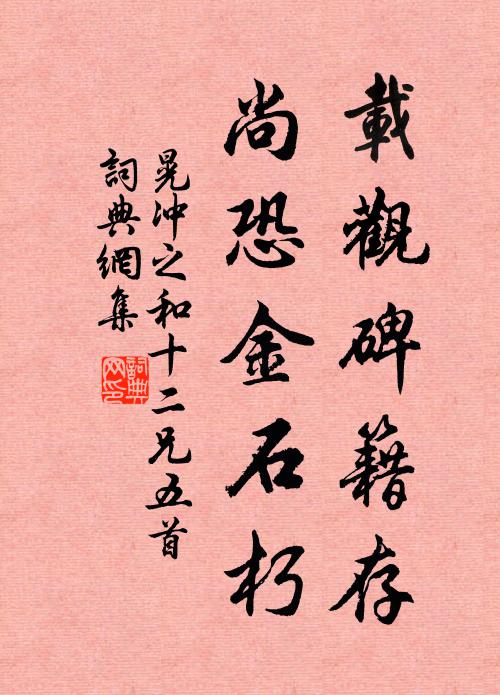 載觀碑籍存
尚恐金石朽
晁沖之和十二兄五首
詞典網集
詞典網印